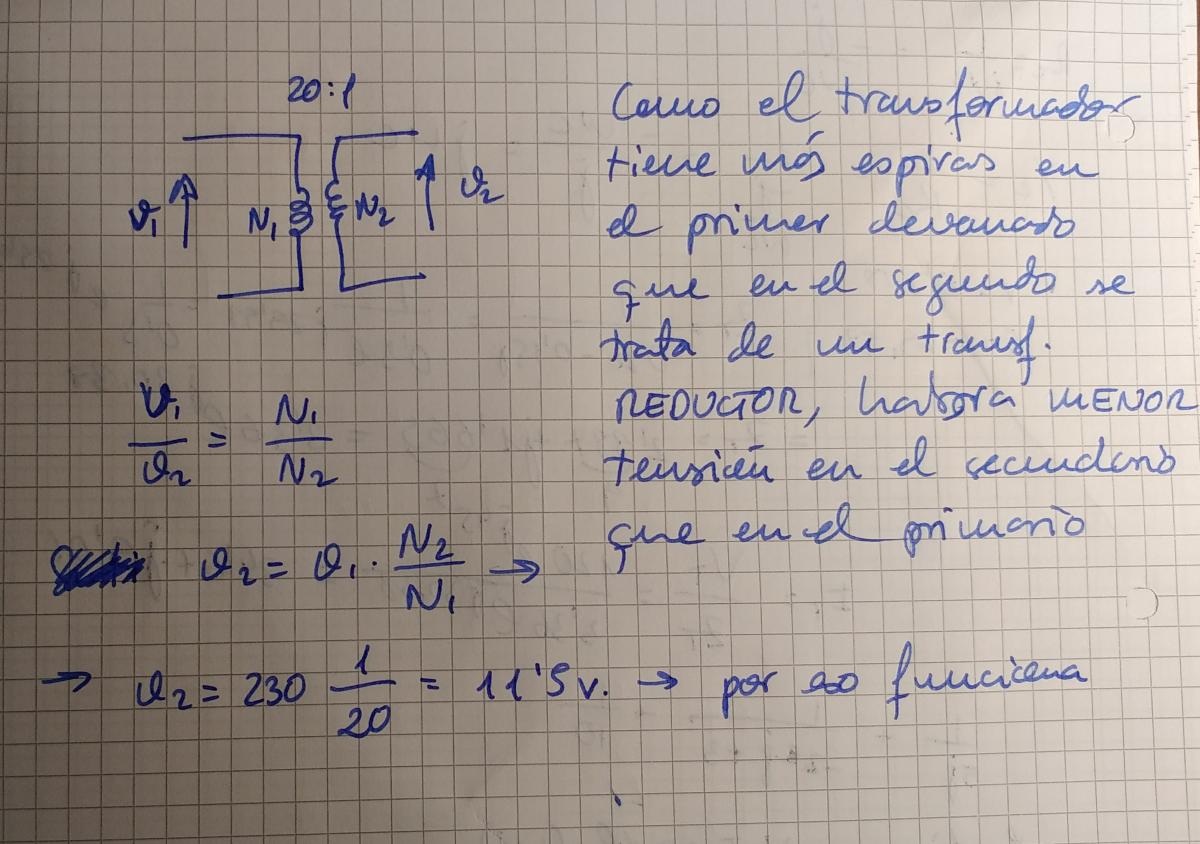 20:1
V1 N1 N2 V2
V1/V2 = N1/N2
V2 = V1 · N2/N1 →
→ V2 = 230 1/20 = 11'5 v. → por eso funciona
Como el transformador
tiene más espiras en
el primer devanado
que en el segundo se
trata de un transf.
REDUCTOR, habrá MENOR
tensión en el secundario
que en el primario